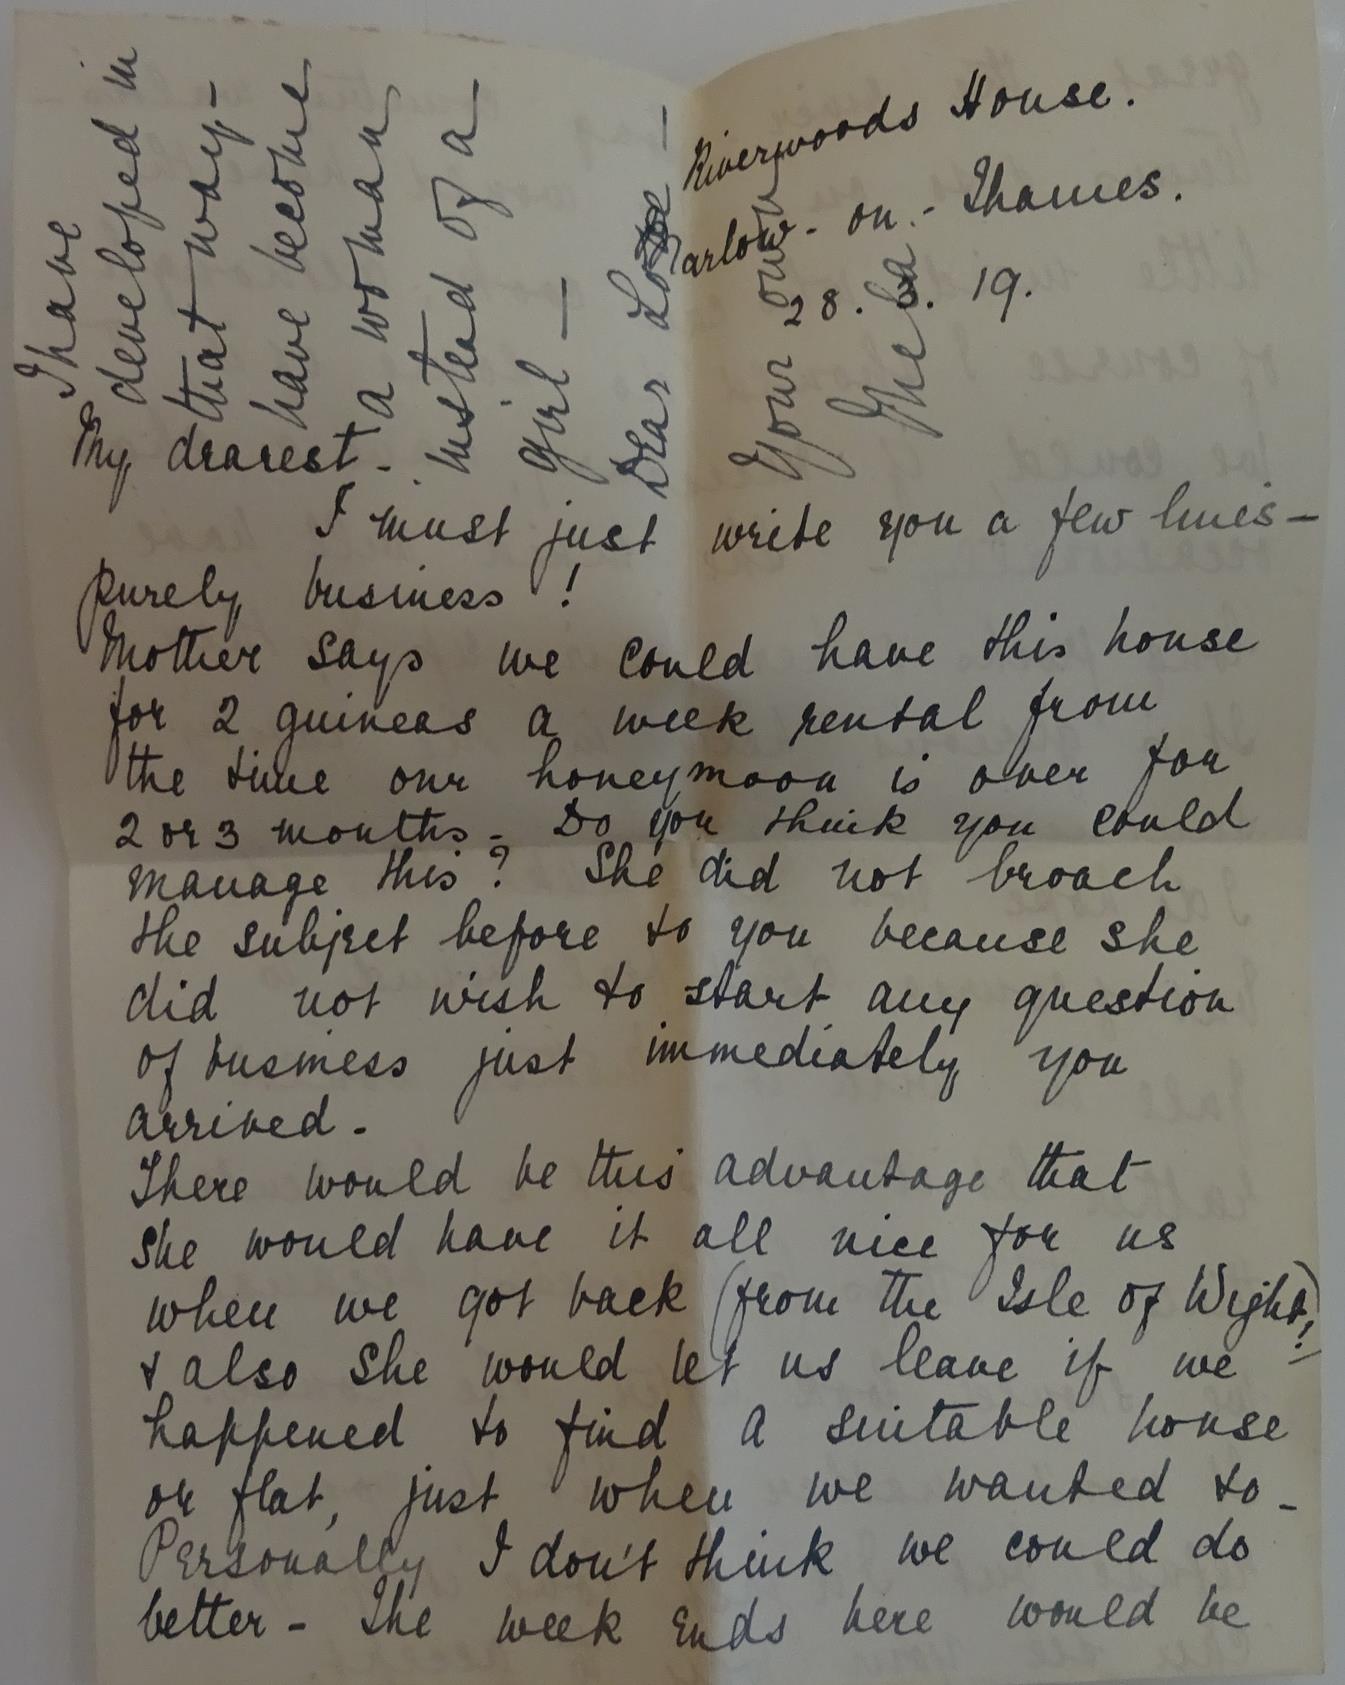 Riverwoods House.
Marlow-on-Thames.
28. 3. 19.
My dearest-
I must just write you a few lines-
purely business!
Mother says we could have this house
for 2 guineas a week rental from
the time our honeymoon is over for
2 or 3 months- Do you think you could
manage this? She did not broach
the subject before to you because she
did not wish to start any question
of business just immediately you
arrived-
There would be this advantage that
she would have it all nice for us
when we got back (from the Isle of Wight)!
& also she would let us leave if we
happened to find a suitable house
or flat, just when we wanted to-
Personally I don't think we could do
better- The week ends here would be
I have
developed in
that way-
have become
a woman
instead of a
girl-
Dear Love-
Your own
Theba